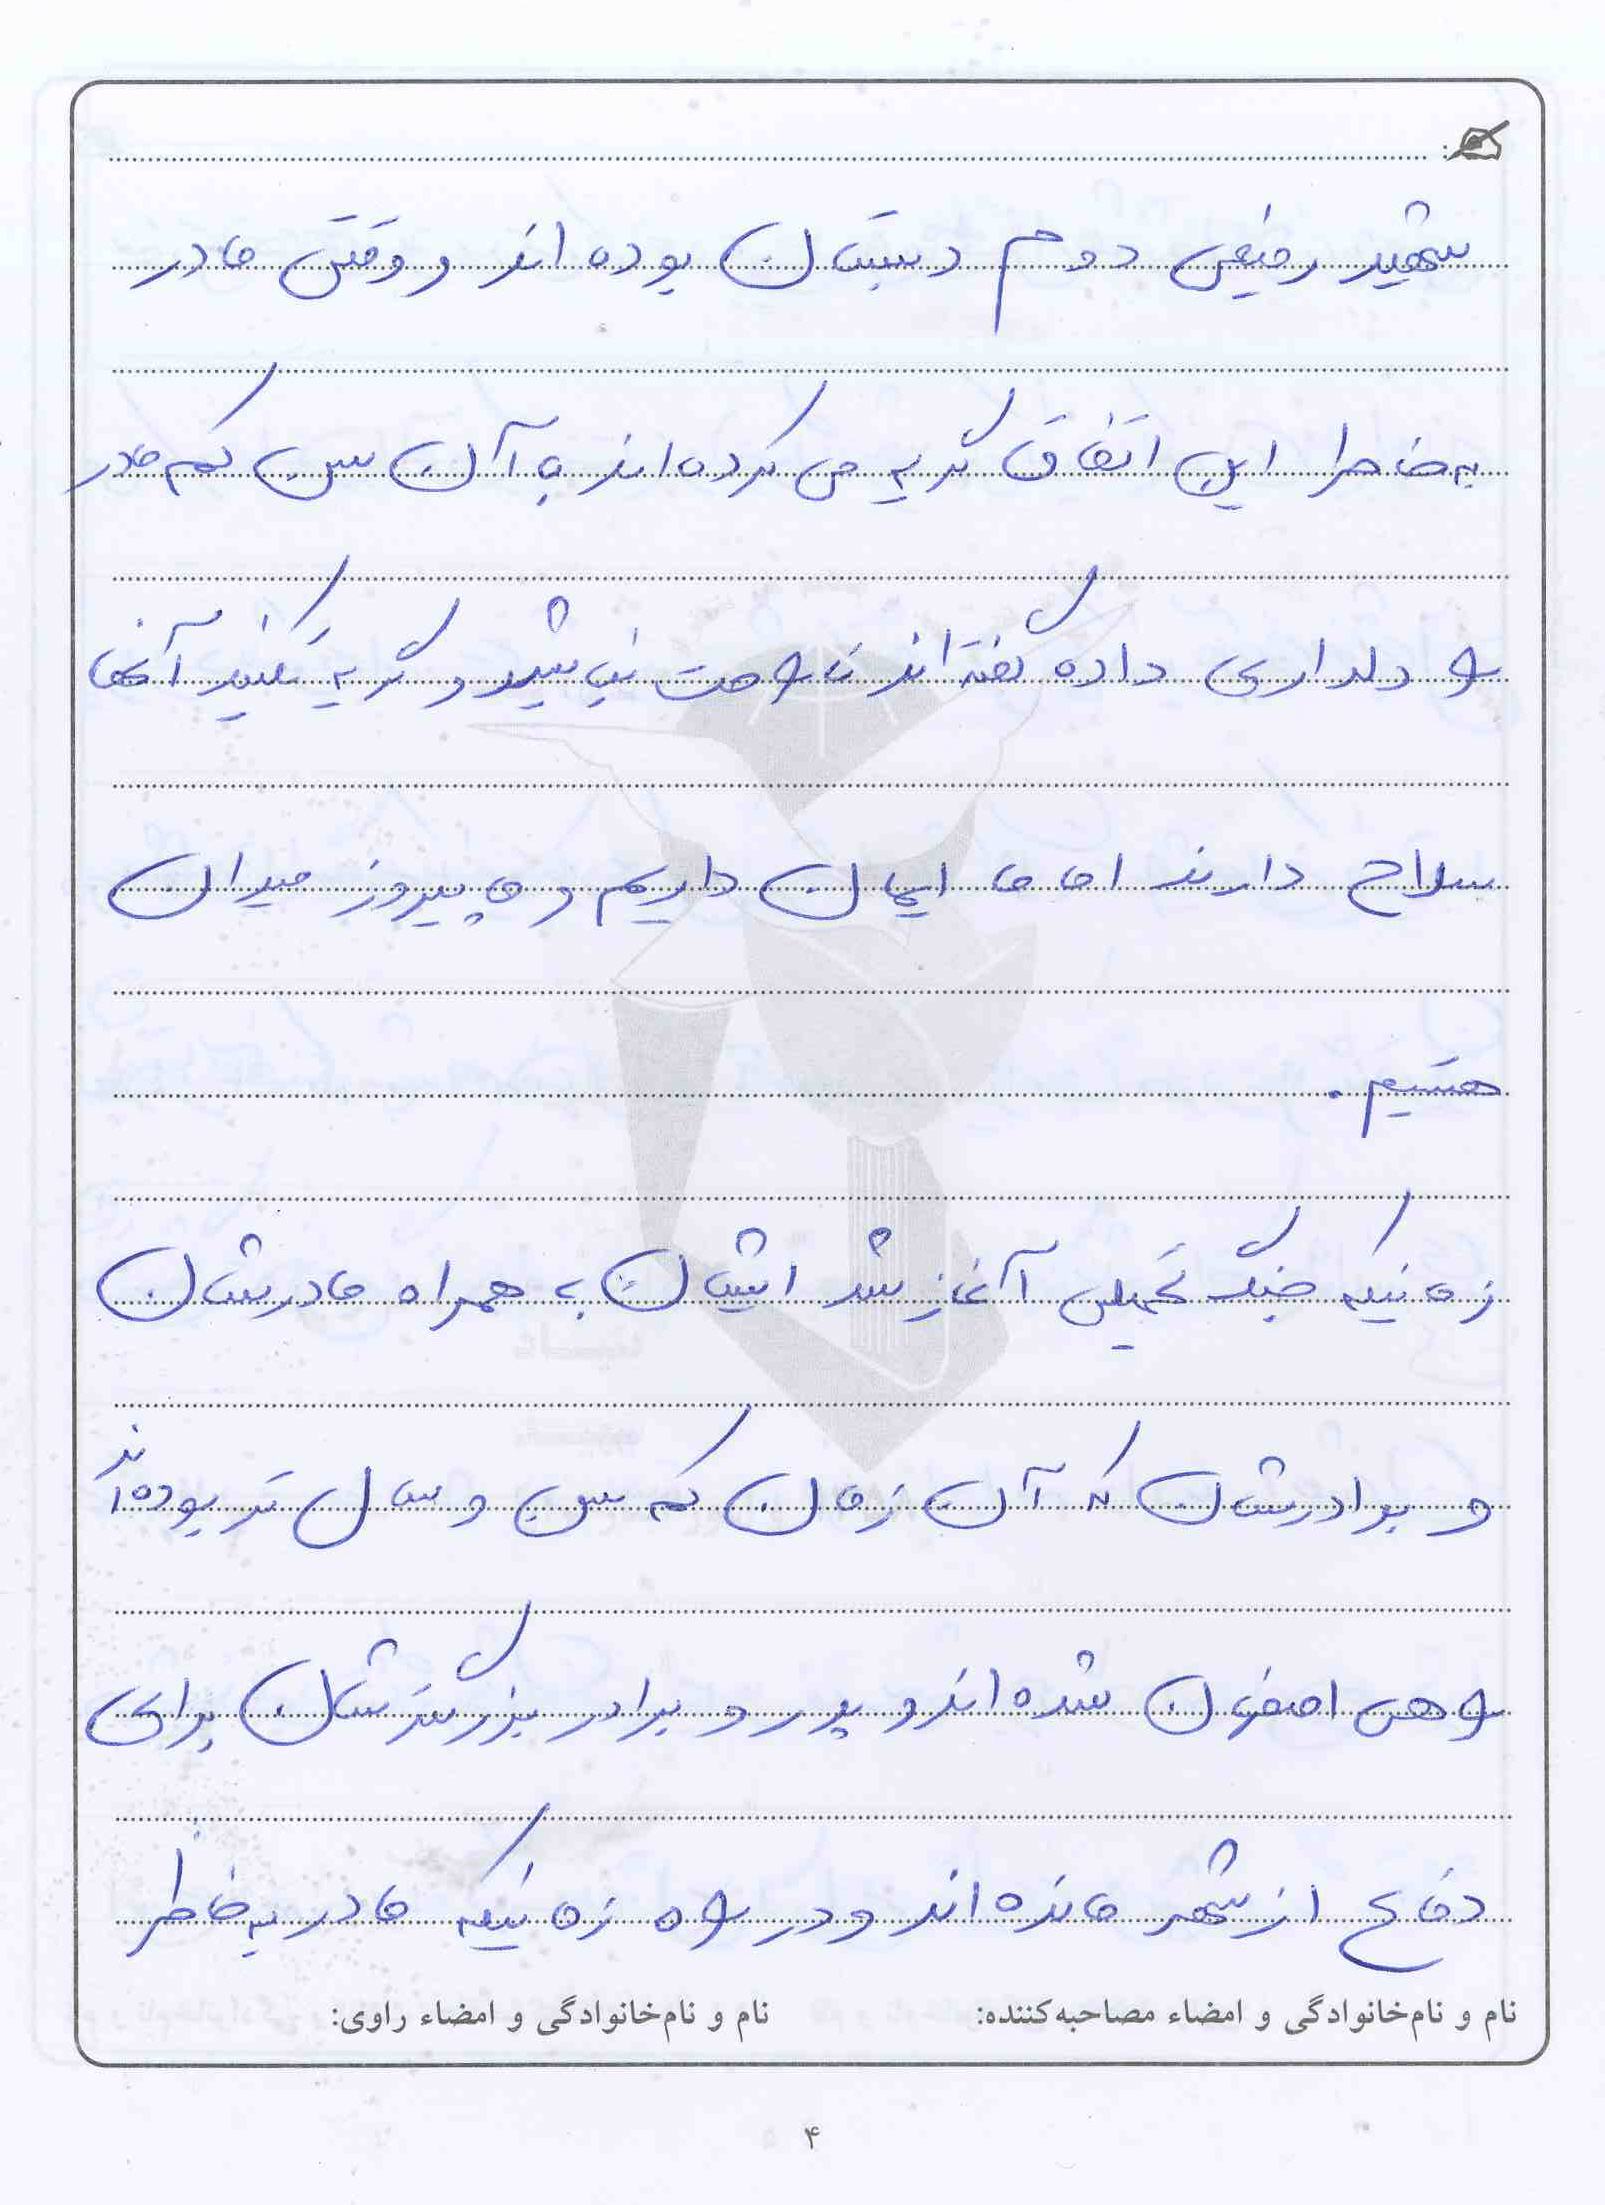 شهید رفیعی دوم دبستان بوده اند و وقتی مادر
به خاطر این اتفاق گریه می کرده اند با آن سن کم مادر
را دلداری داده گفته اند ناراحت نباشید و گریه نکنید آنها
سلاح دارند اما ما ایمان داریم و ما پیروز میدان
هستیم.
زمانیکه جنگ تحمیلی آغاز شد ایشان با همراه مادرشان
و برادرشان که آن زمان کم سن و سال تر بوده اند
راهی اصفهان شده اند و پدر و برادر بزرگترشان برای
دفاع از شهر مانده اند و در راه زمانیکه مادر به خاطر
نام و نام‌خانوادگی و امضاء مصاحبه‌کننده: نام و نام‌خانوادگی و امضاء راوی:
۴